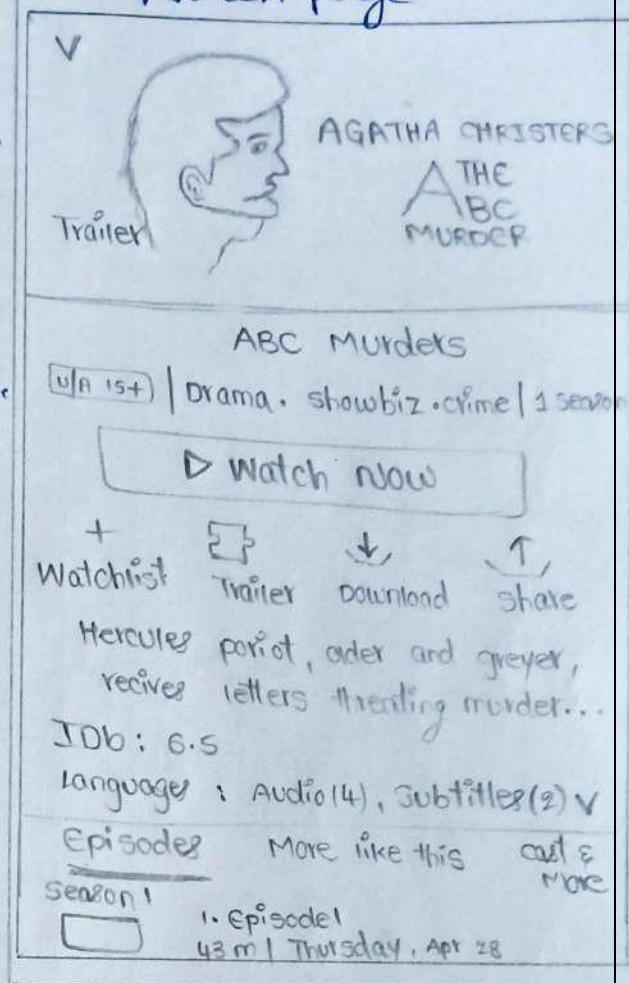 page
V
AGATHA CHRISTERS
THE
ABC
MURDER
Trailer
ABC Murders
U/A 15+ | Drama. showbiz.crime | 1 season
▷ Watch Now
+
Watchlist Trailer Download Share
Hercules poriot, older and greyer,
recives letters threating murder...
IDb: 6.5
Languages : Audio(4), Subtitles(2) V
Episodes More like this cast &
More
Season 1
1. Episode1
43m| Thursday, Apr 28